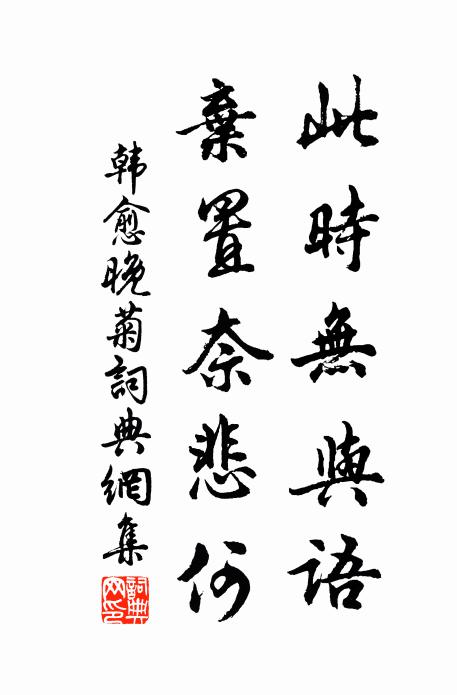 此時無與語
棄置奈悲何
韓愈晚菊詞典網集
詞典網印